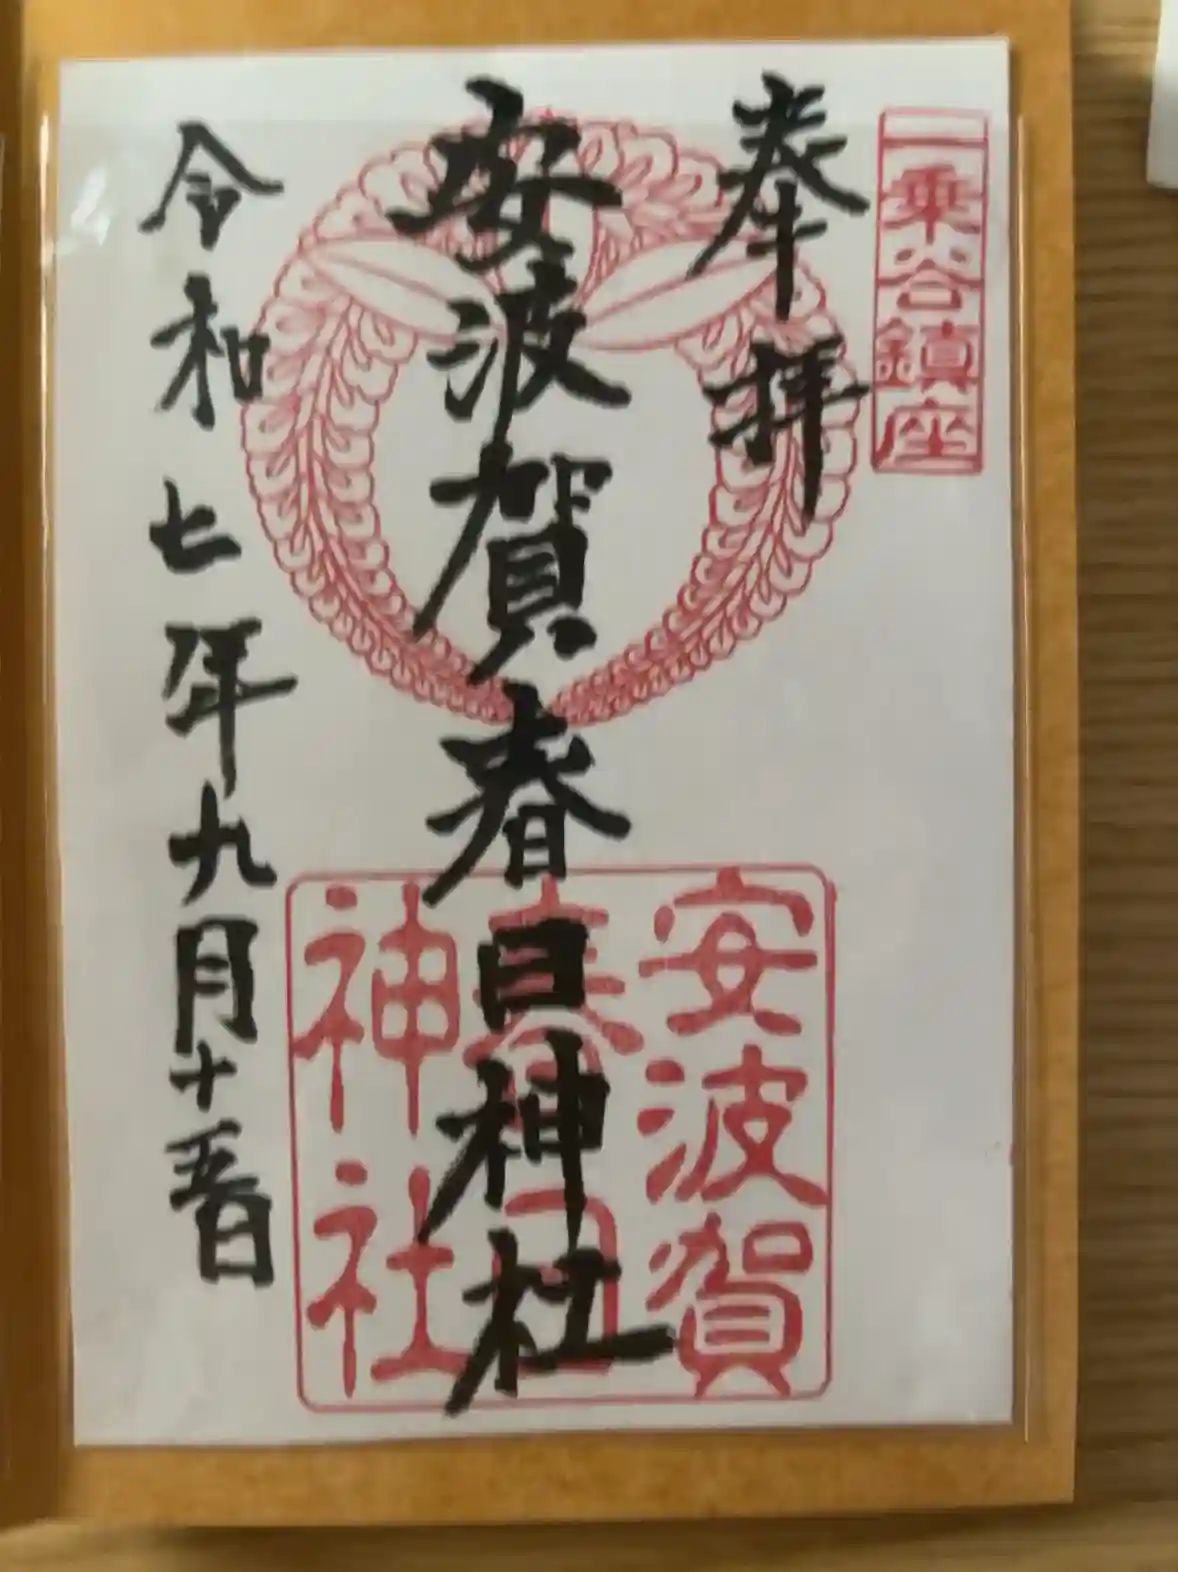 一乗谷鎮座
奉拝
安波賀春日神社
令和七年九月十五日
安波賀
春日
神社